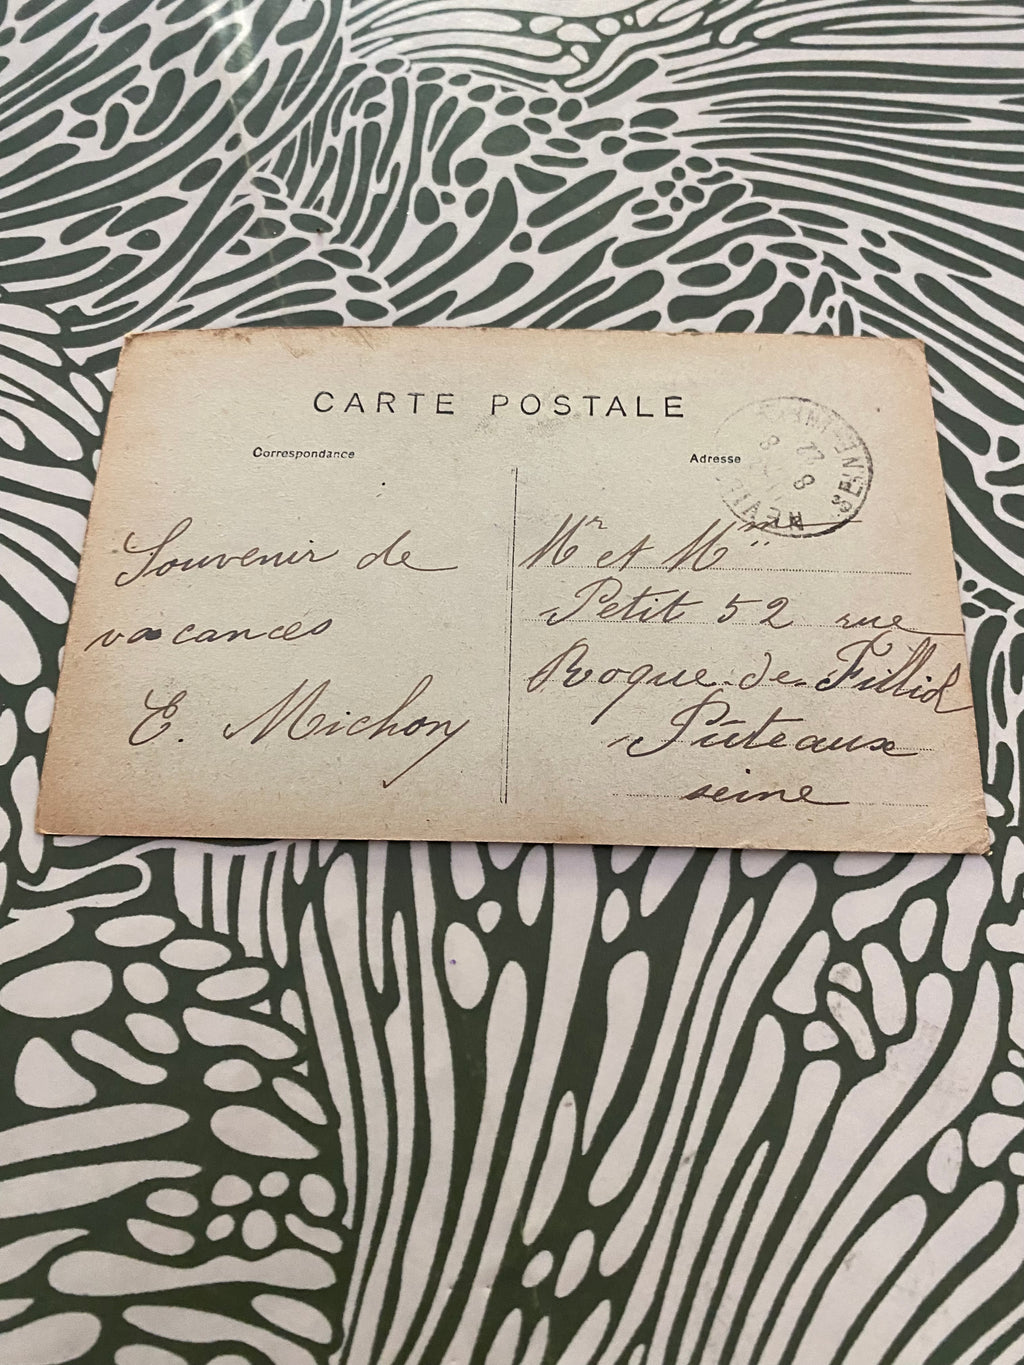 CARTE POSTALE
Correspondance
Adresse
Souvenir de
vacances
E. Michon
Mr et Mme
Petit 52 rue
Roque de Filliol
Puteaux
seine